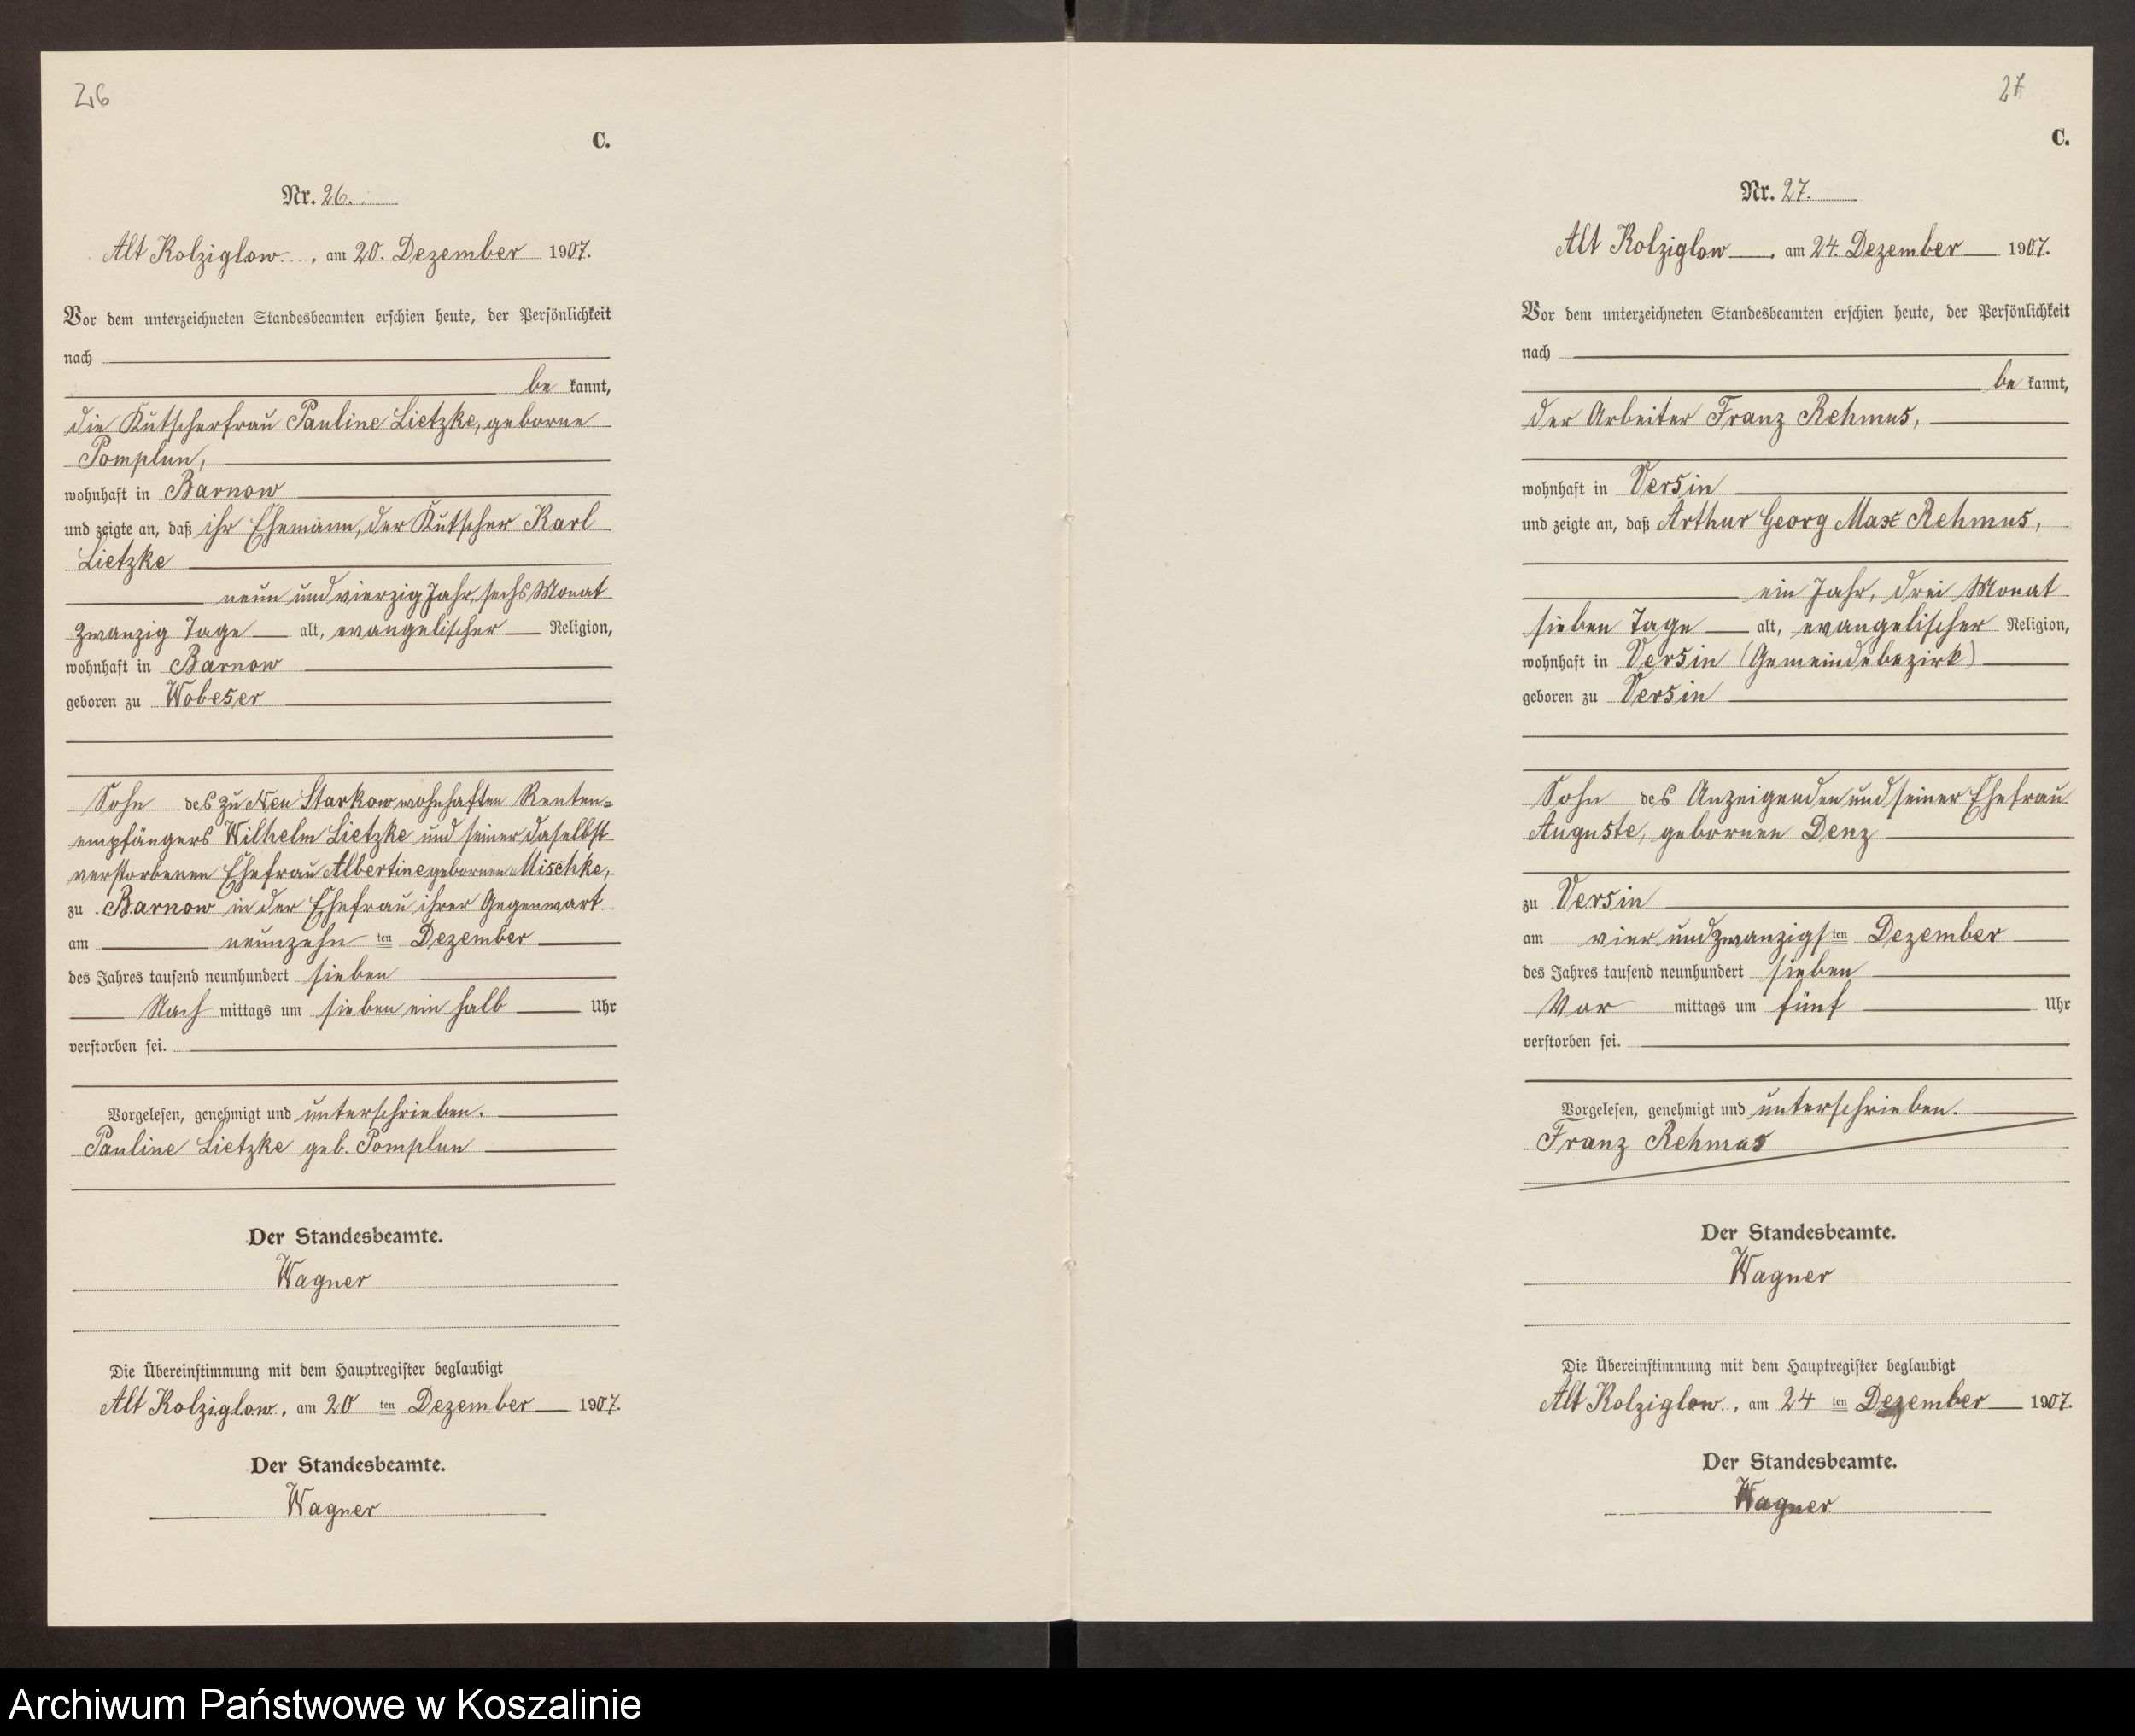 26
C.
Nr. 26.
Alt Kolziglow, am 20. Dezember 1907.
Vor dem unterzeichneten Standesbeamten erschien heute, der Persönlichkeit
nach
be kannt,
die Kutscherfrau Pauline Lietzke, geborne
Pomplun,
wohnhaft in Barnow
und zeigte an, daß ihr Ehemann, der Kutscher Karl
Lietzke
neun und vierzig Jahr, sechs Monat
zwanzig Tage alt, evangelischer Religion,
wohnhaft in Barnow
geboren zu Wobeser
Sohn des zu Neu Starkow wohnhaften Renten=
empfängers Wilhelm Lietzke und seiner daselbst
verstorbenen Ehefrau Albertine gebornen Mischke,
zu Barnow in der Ehefrau ihrer Gegenwart
am neunzehn ten Dezember
des Jahres tausend neunhundert sieben
Nach mittags um sieben ein halb Uhr
verstorben sei.
Vorgelesen, genehmigt und unterschrieben.
Pauline Lietzke geb. Pomplun
Der Standesbeamte.
Wagner
Die Übereinstimmung mit dem Hauptregister beglaubigt
Alt Kolziglow, am 20 ten Dezember 1907.
Der Standesbeamte.
Wagner
27
C.
Nr. 27.
Alt Kolziglow, am 24. Dezember 1907.
Vor dem unterzeichneten Standesbeamten erschien heute, der Persönlichkeit
nach
be kannt,
der Arbeiter Franz Rehmus,
wohnhaft in Versin
und zeigte an, daß Arthur Georg Max Rehmus,
ein Jahr, drei Monat
sieben Tage alt, evangelischer Religion,
wohnhaft in Versin (Gemeindebezirk)
geboren zu Versin
Sohn des Anzeigenden und seiner Ehefrau
Auguste, gebornen Denz
zu Versin
am vier und zwanzigsten Dezember
des Jahres tausend neunhundert sieben
Vor mittags um fünf Uhr
verstorben sei.
Vorgelesen, genehmigt und unterschrieben.
Franz Rehmus
Der Standesbeamte.
Wagner
Die Übereinstimmung mit dem Hauptregister beglaubigt
Alt Kolziglow, am 24 ten Dezember 1907.
Der Standesbeamte.
Wagner
Archiwum Państwowe w Koszalinie